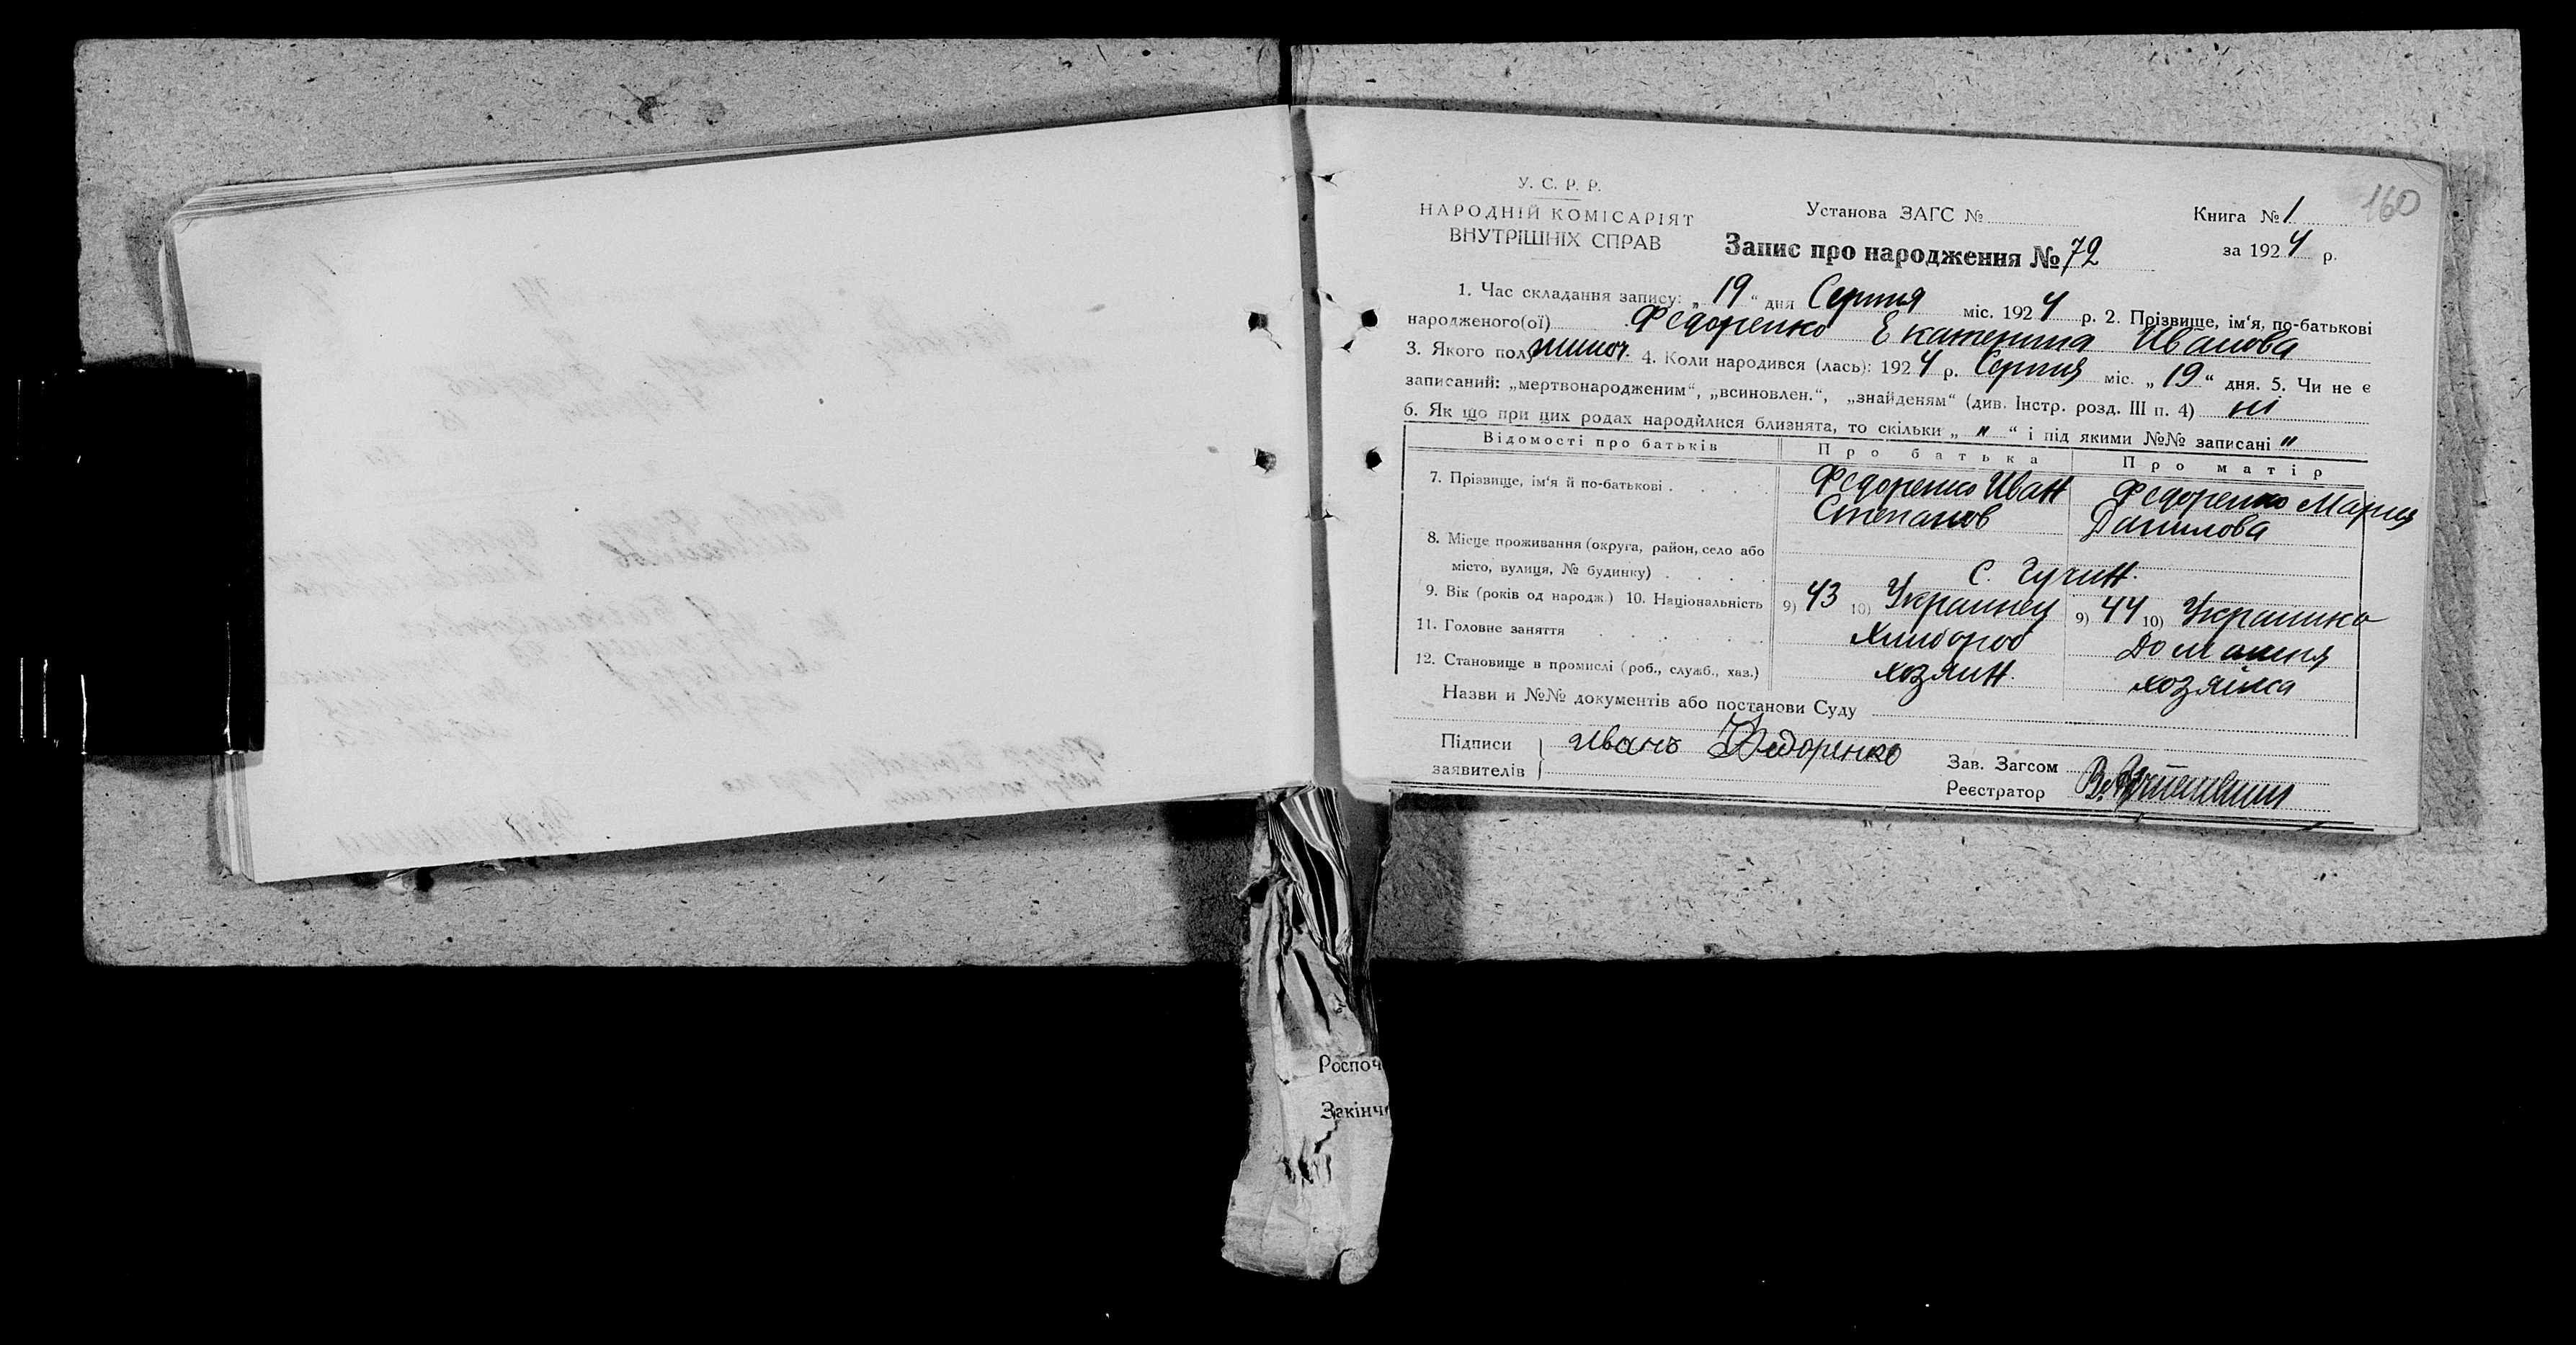 160
У. С. Р. Р.
НАРОДНІЙ КОМІСАРІЯТ
ВНУТРІШНІХ СПРАВ
Установа ЗАГС №
Книга № 1
Запис про народження № 72
за 1924 р.
1. Час складання запису: „19“ дня Серпня міс. 1924 р. 2. Прізвище, ім'я, по-батькові
народженого(ої) Федоренко Екатерина Иванова
3. Якого полу жиноч. 4. Коли народився (лась): 1924 р. Серпня міс. „19“ дня. 5. Чи не є
записаний: „мертвонародженим“, „всиновлен.“, „знайденям“ (див. Інстр. розд. III п. 4) ні
6. Як що при цих родах народилися близнята, то скільки „ " “ і під якими №№ записані "
Відомості про батьків Про батька Про матір
7. Прізвище, ім'я й по-батькові . . . . Федоренко Иван Федоренко Мария
Степанов Данилова
8. Місце проживання (округа, район, село або
місто, вулиця, № будинку) . . . . с. Гучин.
9. Вік (років од народж.) 10. Національність 9) 43 10) Украинец 9) 44 10) Украинка
11. Головне заняття . . . . . Хлибороб Домашня
12. Становище в промислі (роб., служб., хаз.) хозяин. хозяйка
Назви и №№ документів або постанови Суду
Підписи
заявителів
Иванъ Федоренко
Зав. Загсом
Реєстратор
Роспоч
Закінч